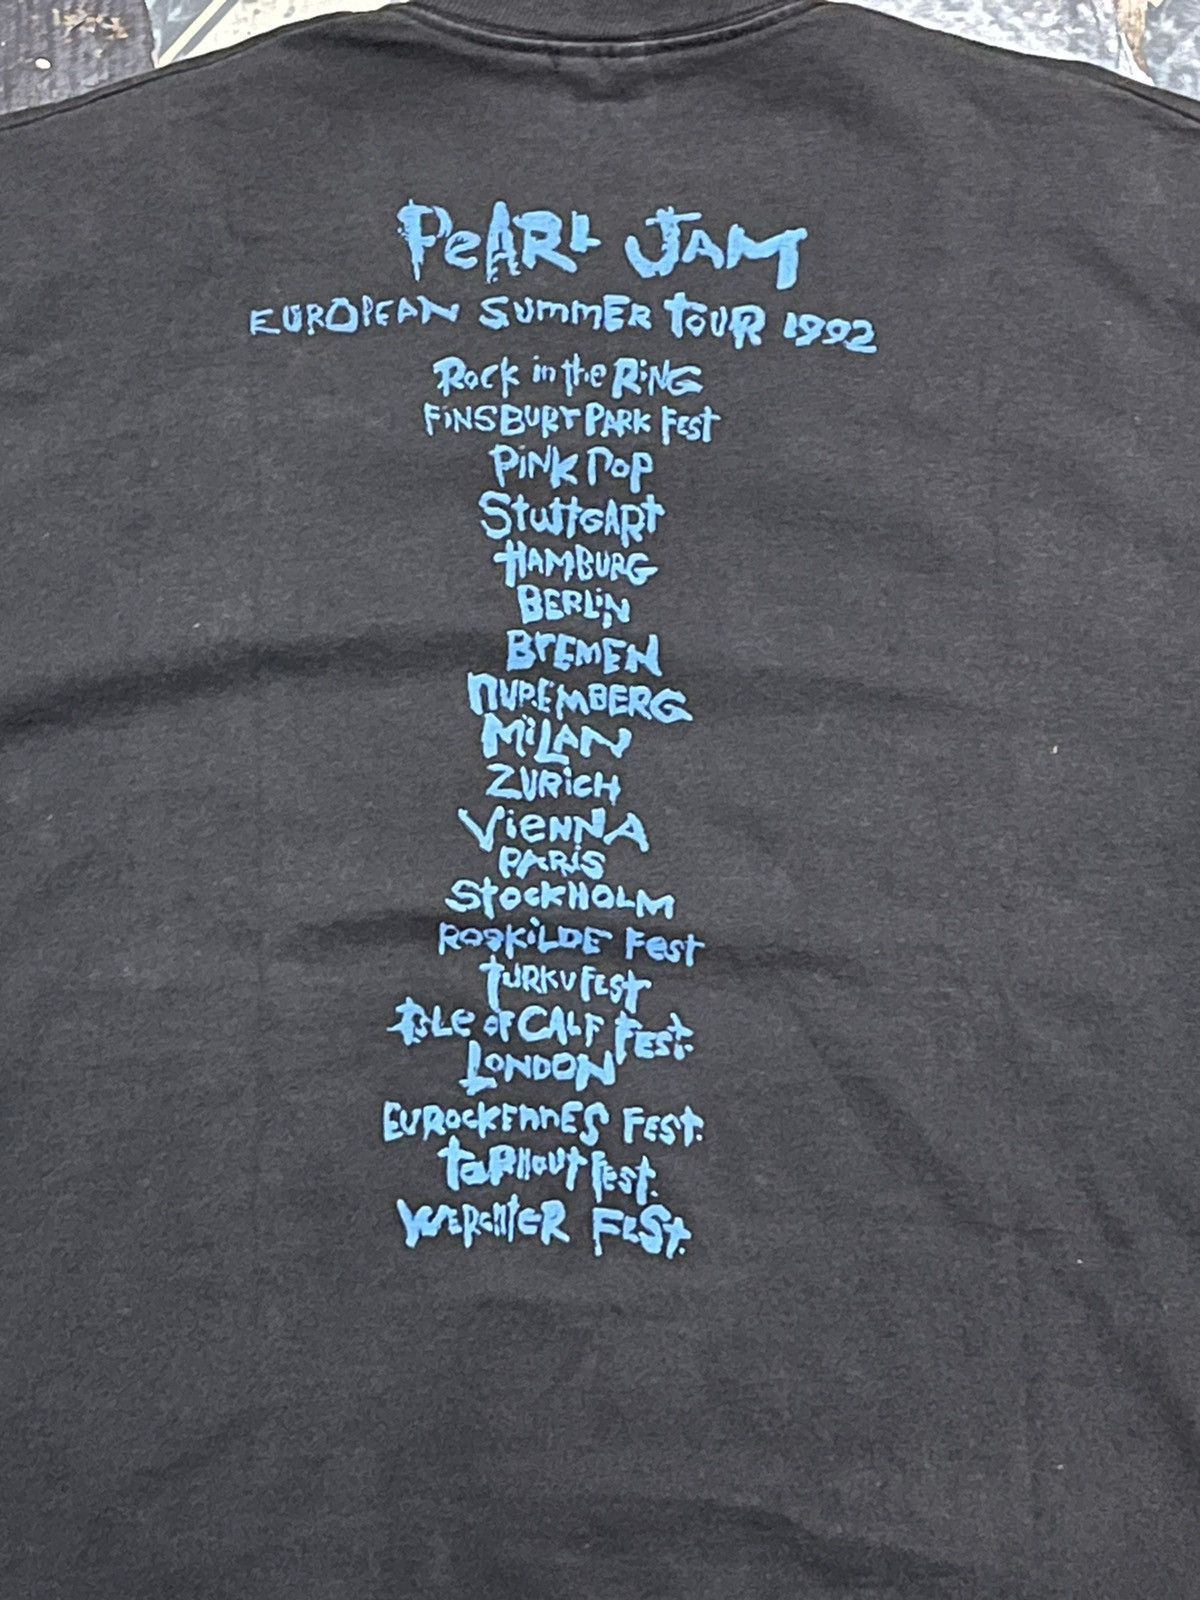 PeARL JAM
EUROPEAN SUmmER TOUR 1992
Rock in the RiNG
FiNSBURY PARK FEST
PiNK POP
StuttGARt
HAMBURG
BERLiN
BrEMEN
NUREMBERG
MiLAN
ZURicH
VieNNA
PARiS
StOCKHOLM
ROSKiLDE Fest
TURKU FEST
ISLe OF CALF FEST.
LONDON
EUROCKEnnES FEST.
TORHOUT FEST.
WERCHTER FEST.